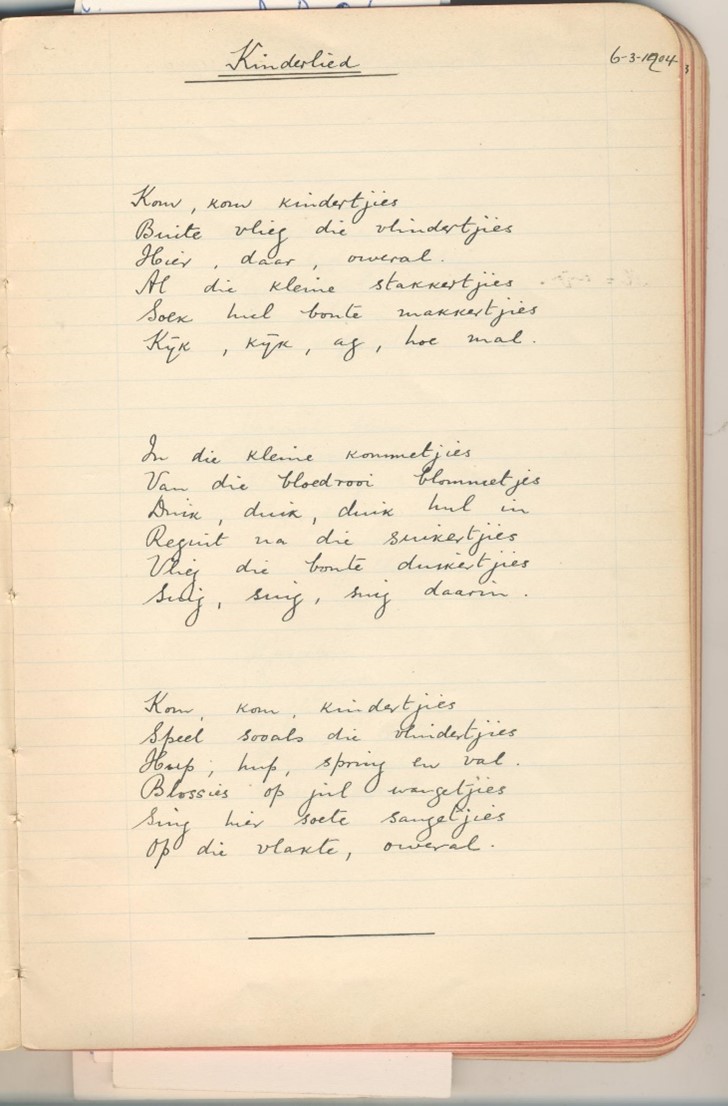 Kinderlied
6-3-1904
3
Kom, kom kindertjies
Buite vlieg die vlindertjies
Hier, daar, oweral.
Al die kleine stakkertjies
Soek hul bonte makkertjies
Kӯk, kӯk, ag, hoe mal.
In die kleine kommetjies
Van die bloedrooi blommetjes
Duik, duik, duik hul in
Reguit na die suikertjies
Vlieg die bonte duikertjies
Suig, suig, suig daarin.
Kom, kom, kindertjies
Speel sooals die vlindertjies
Hup, hup, spring en val.
Blossies op jul wangetjies
Sing hier soete sangetjies
Op die vlakte, oweral.